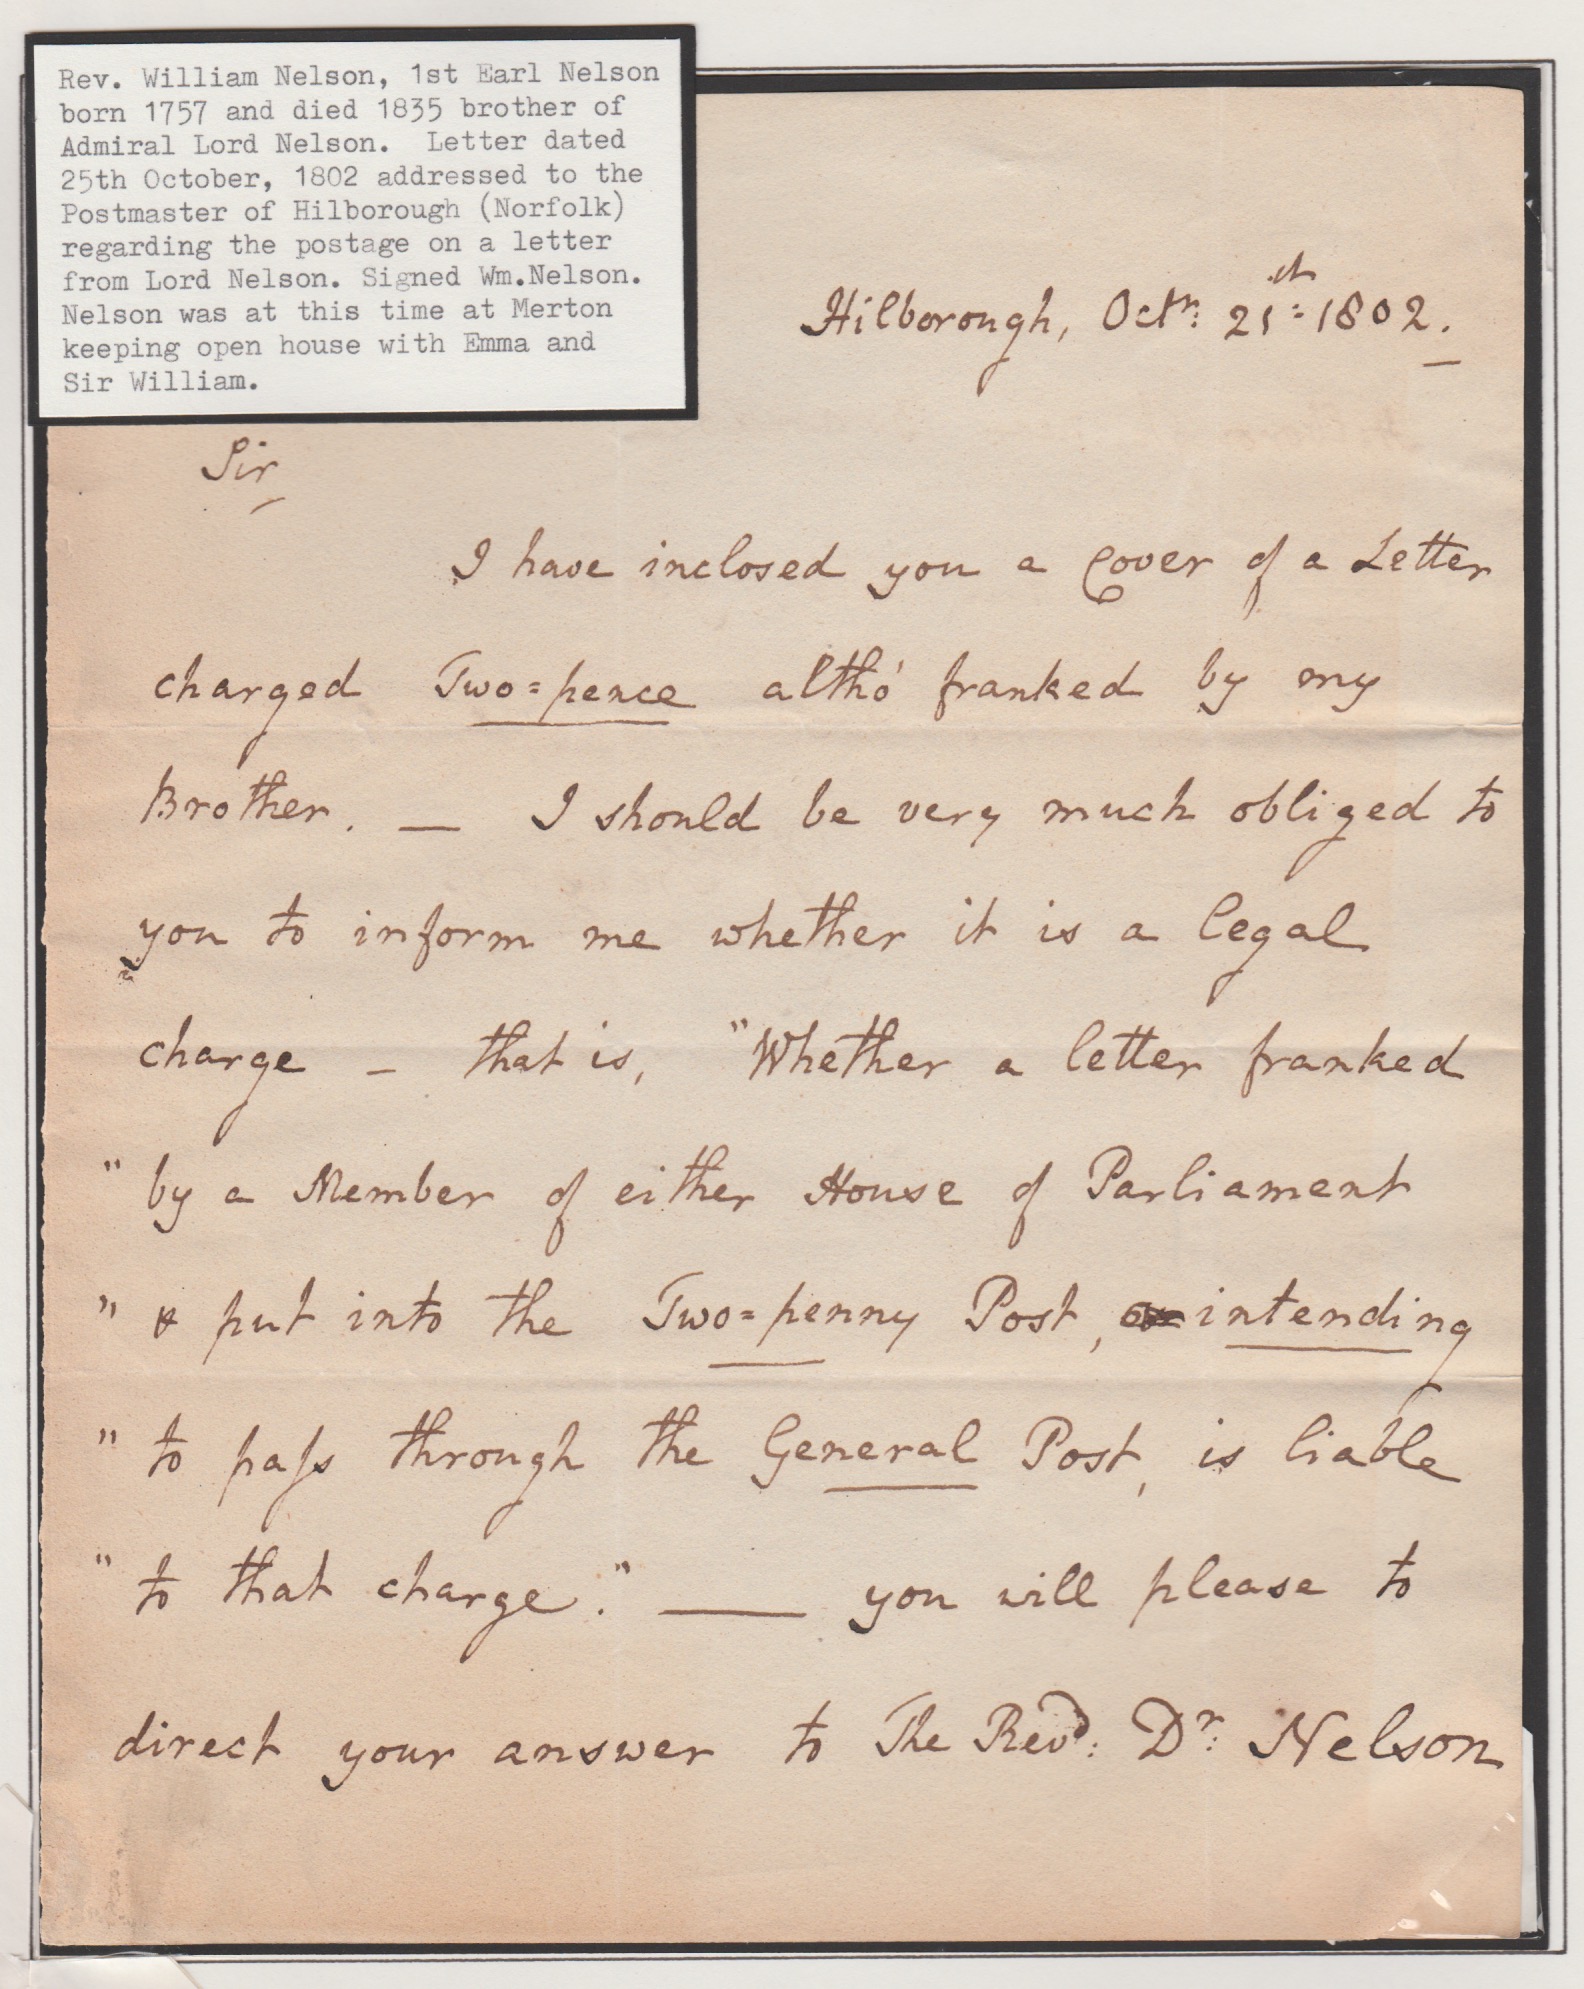 Rev. William Nelson, 1st Earl Nelson
born 1757 and died 1835 brother of
Admiral Lord Nelson. Letter dated
25th October, 1802 addressed to the
Postmaster of Hilborough (Norfolk)
regarding the postage on a letter
from Lord Nelson. Signed Wm.Nelson.
Nelson was at this time at Merton
keeping open house with Emma and
Sir William.
Hilborough, Octr: 21th: 1802.
Sir
I have inclosed you a Cover of a Letter
charged Two=pence altho' franked by my
Brother. — I should be very much obliged to
you to inform me whether it is a legal
charge – that is, "Whether a letter franked
" by a Member of either House of Parliament
" & put into the Two=penny Post, intending
" to paſs through the General Post, is liable
" to that charge." — you will please to
direct your answer to The Revd: Dr: Nelson